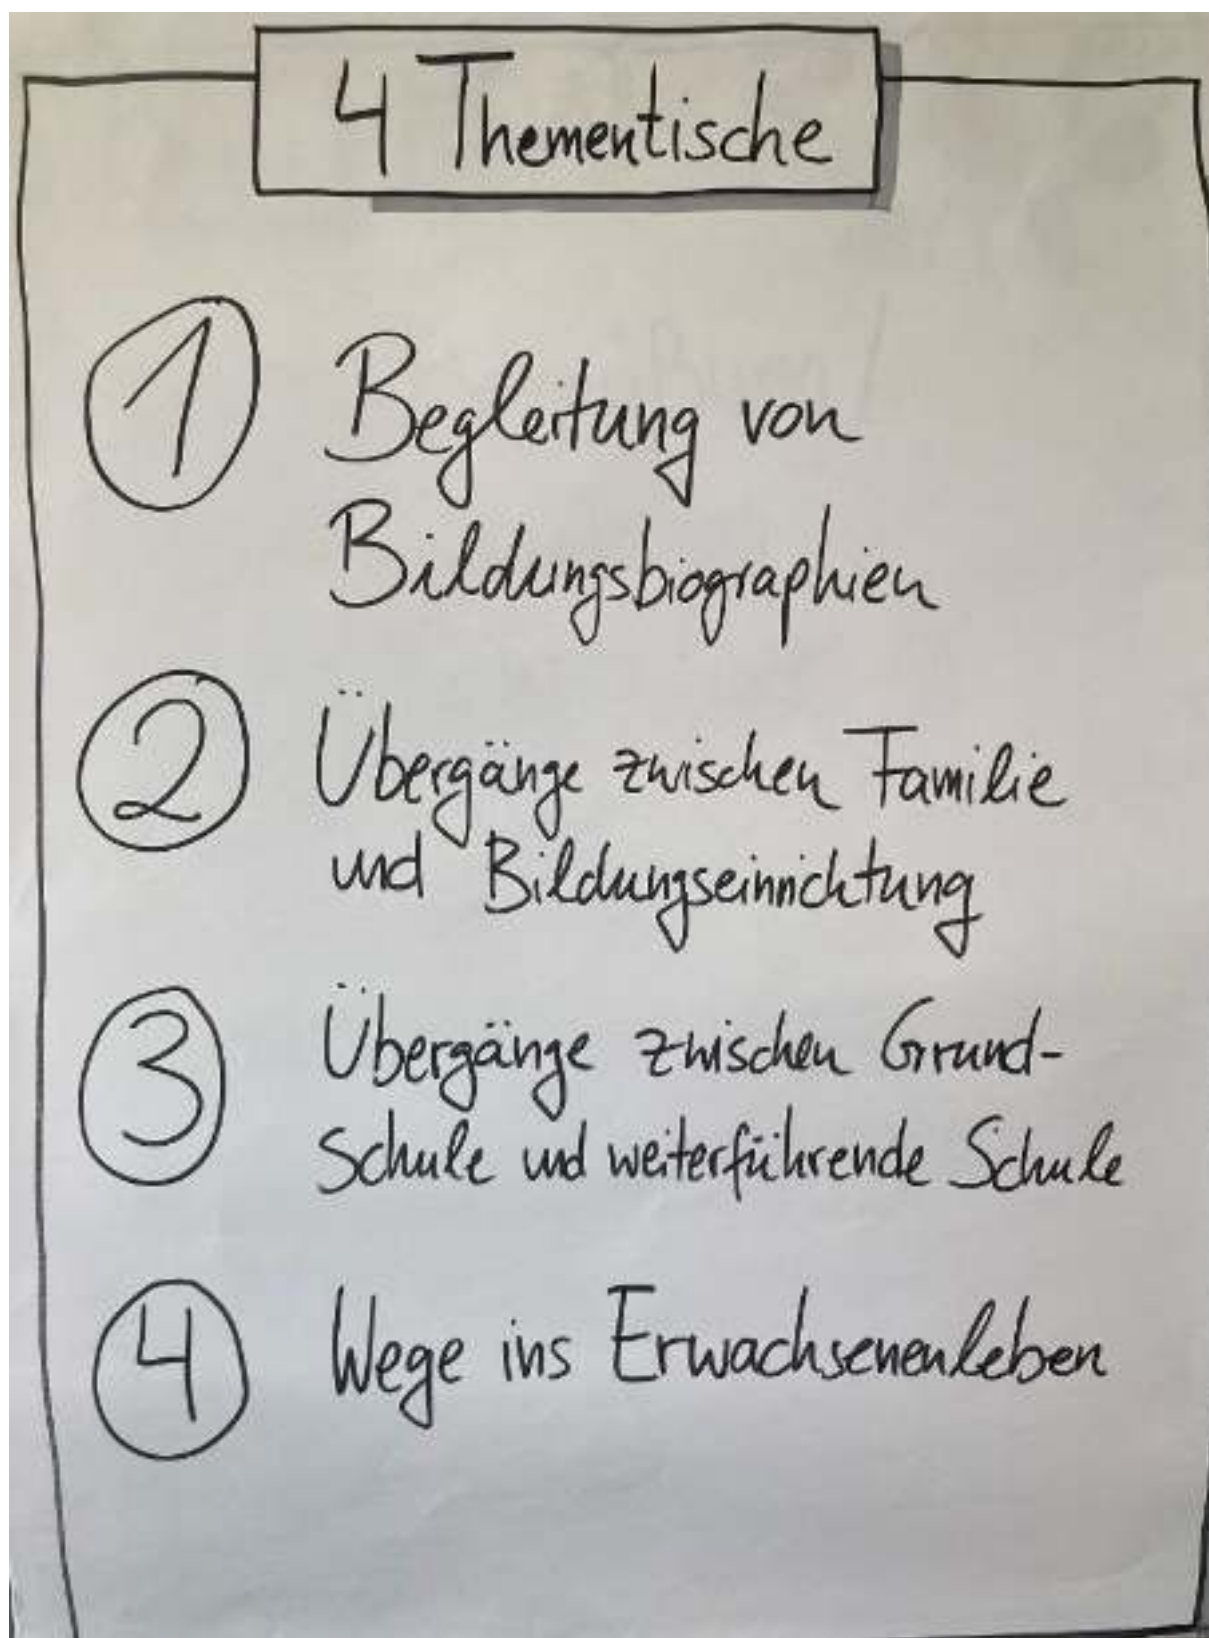 4 Thementische
1 Begleitung von
Bildungsbiographien
2 Übergänge zwischen Familie
und Bildungseinrichtung
3 Übergänge zwischen Grund-
Schule und weiterführende Schule
4 Wege ins Erwachsenenleben